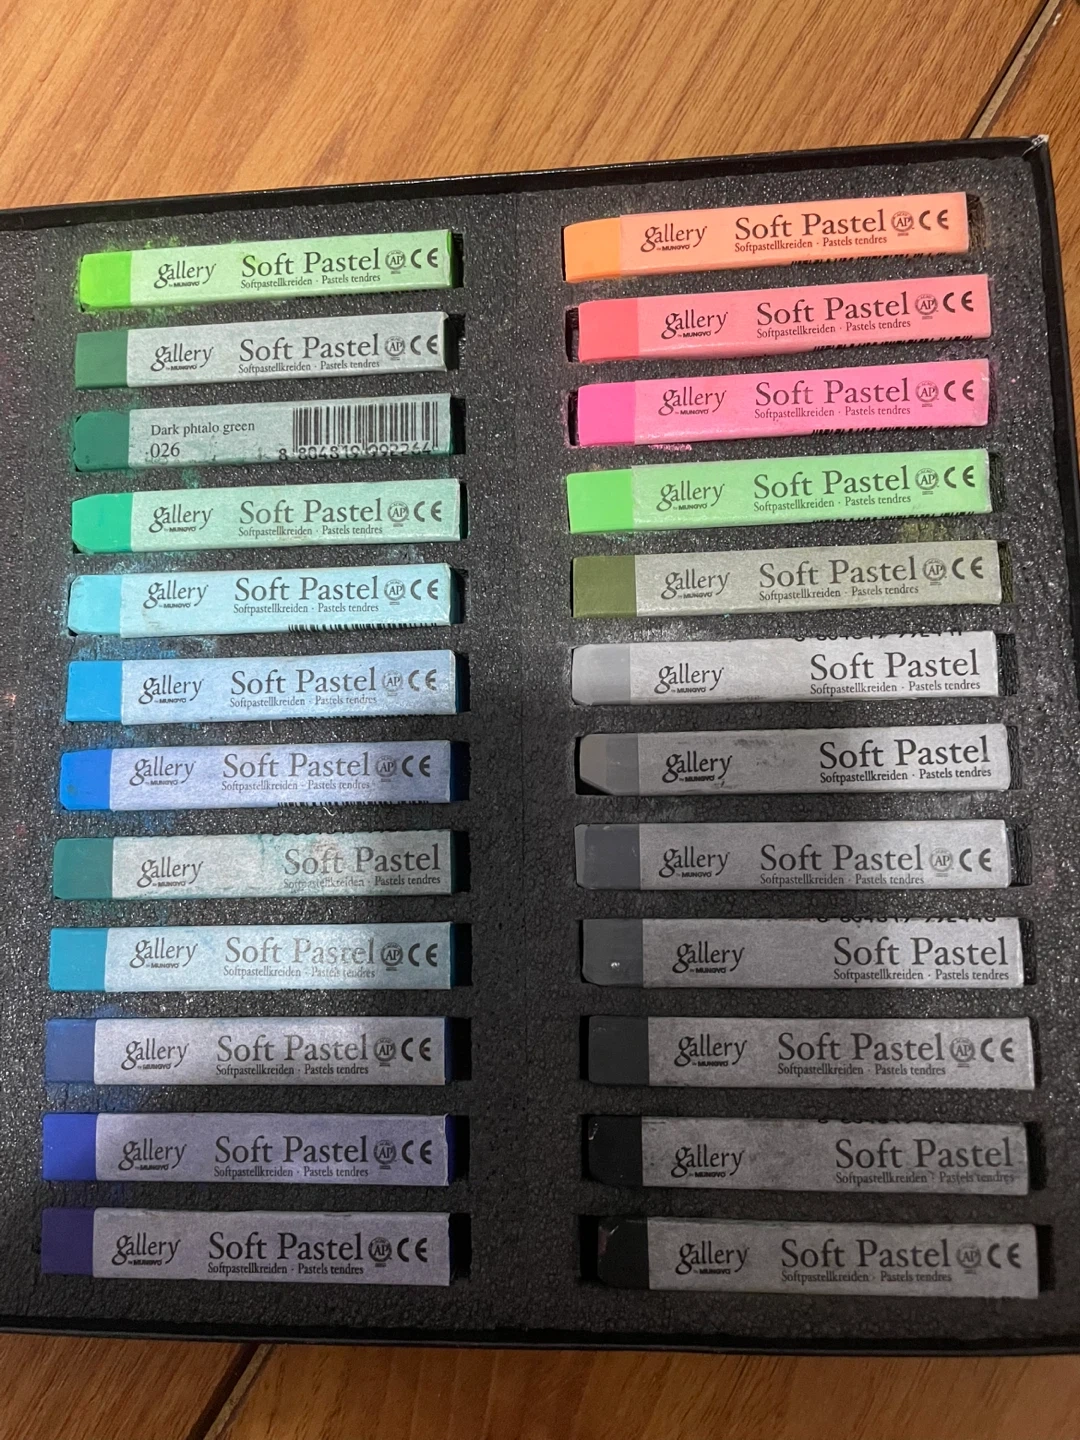 gallery Soft Pastel AP CE
by MUNGYO Softpastellkreiden · Pastels tendres
gallery Soft Pastel AP CE
by MUNGYO Softpastellkreiden · Pastels tendres
Dark phtalo green
026 8 804819 992264
gallery Soft Pastel AP CE
by MUNGYO Softpastellkreiden · Pastels tendres
gallery Soft Pastel AP CE
by MUNGYO Softpastellkreiden · Pastels tendres
gallery Soft Pastel AP CE
by MUNGYO Softpastellkreiden · Pastels tendres
gallery Soft Pastel AP CE
by MUNGYO Softpastellkreiden · Pastels tendres
gallery Soft Pastel
by MUNGYO Softpastellkreiden · Pastels tendres
gallery Soft Pastel AP CE
by MUNGYO Softpastellkreiden · Pastels tendres
gallery Soft Pastel AP CE
by MUNGYO Softpastellkreiden · Pastels tendres
gallery Soft Pastel AP CE
by MUNGYO Softpastellkreiden · Pastels tendres
gallery Soft Pastel AP CE
by MUNGYO Softpastellkreiden · Pastels tendres
gallery Soft Pastel AP CE
by MUNGYO Softpastellkreiden · Pastels tendres
gallery Soft Pastel AP CE
by MUNGYO Softpastellkreiden · Pastels tendres
gallery Soft Pastel AP CE
by MUNGYO Softpastellkreiden · Pastels tendres
gallery Soft Pastel AP CE
by MUNGYO Softpastellkreiden · Pastels tendres
gallery Soft Pastel AP CE
by MUNGYO Softpastellkreiden · Pastels tendres
gallery Soft Pastel
by MUNGYO Softpastellkreiden · Pastels tendres
gallery Soft Pastel
by MUNGYO Softpastellkreiden · Pastels tendres
gallery Soft Pastel AP CE
by MUNGYO Softpastellkreiden · Pastels tendres
gallery Soft Pastel
by MUNGYO Softpastellkreiden · Pastels tendres
gallery Soft Pastel AP CE
by MUNGYO Softpastellkreiden · Pastels tendres
gallery Soft Pastel
by MUNGYO Softpastellkreiden · Pastels tendres
gallery Soft Pastel AP CE
by MUNGYO Softpastellkreiden · Pastels tendres